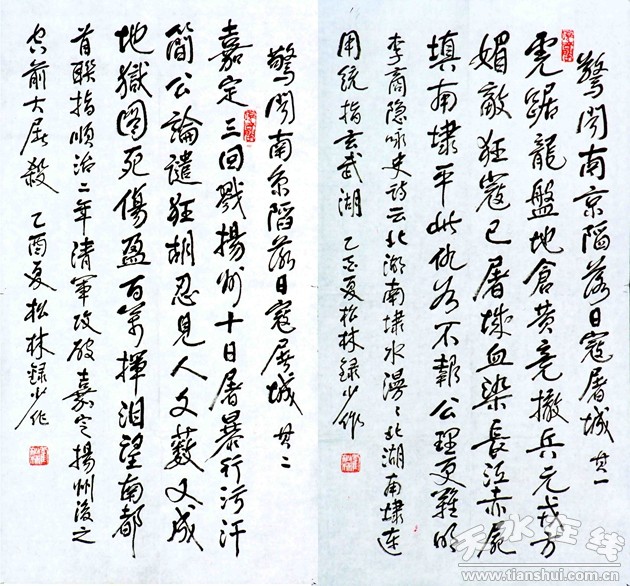 驚闻南京陷落日寇屠城 其一
虎踞龍盤地倉黄竟撤兵元戎方
媚敵狂寇已屠城血染長江赤屍
填南埭平此仇若不報公理更難明
李商隐咏史詩云北湖南埭水漫〻北湖南埭連
用統指玄武湖 乙酉夏松林録少作
驚闻南京陷落日寇屠城 其二
嘉定三回戮揚州十日屠暴行污汗
簡公論譴狂胡忍見人文薮又成
地獄圖死傷盈百萬揮泪望南都
首聯指順治二年清軍攻破嘉定揚州後之
空前大屠殺 乙酉夏松林録少作
天水在线
www.tianshui.com.cn